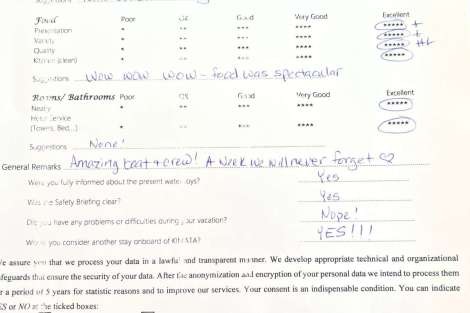 Food Poor OK Good Very Good Excellent
Presentation * ** *** **** ***** +
Variety * ** *** **** ***** +
Quality * ** *** **** ***** ++
Kitchen (clean) * ** *** **** *****
Suggestions WOW WOW WOW - food was spectacular
Rooms/ Bathrooms Poor OK Good Very Good Excellent
Neatly * ** *** **** *****
Hotel Service
(Towels, Bed...) * ** *** **** *****
Suggestions None!
General Remarks Amazing boat + crew! A week we will never forget ♡
Were you fully informed about the present water toys? Yes
Was the Safety Briefing clear? Yes
Did you have any problems or difficulties during your vacation? Nope!
Would you consider another stay onboard of YES!!!
We assure you that we process your data in a lawful and transparent manner. We develop appropriate technical and organizational
safeguards that ensure the security of your data. After the anonymization and encryption of your personal data we intend to process them
for a period of 5 years for statistic reasons and to improve our services. Your consent is an indispensable condition. You can indicate
YES or NO at the ticked boxes: